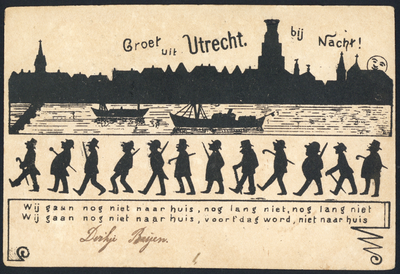 Groet uit Utrecht. bij Nacht!
Wij gaan nog niet naar huis, nog lang niet, nog lang niet
Wij gaan nog niet naar huis, voor 't dag word, niet naar huis